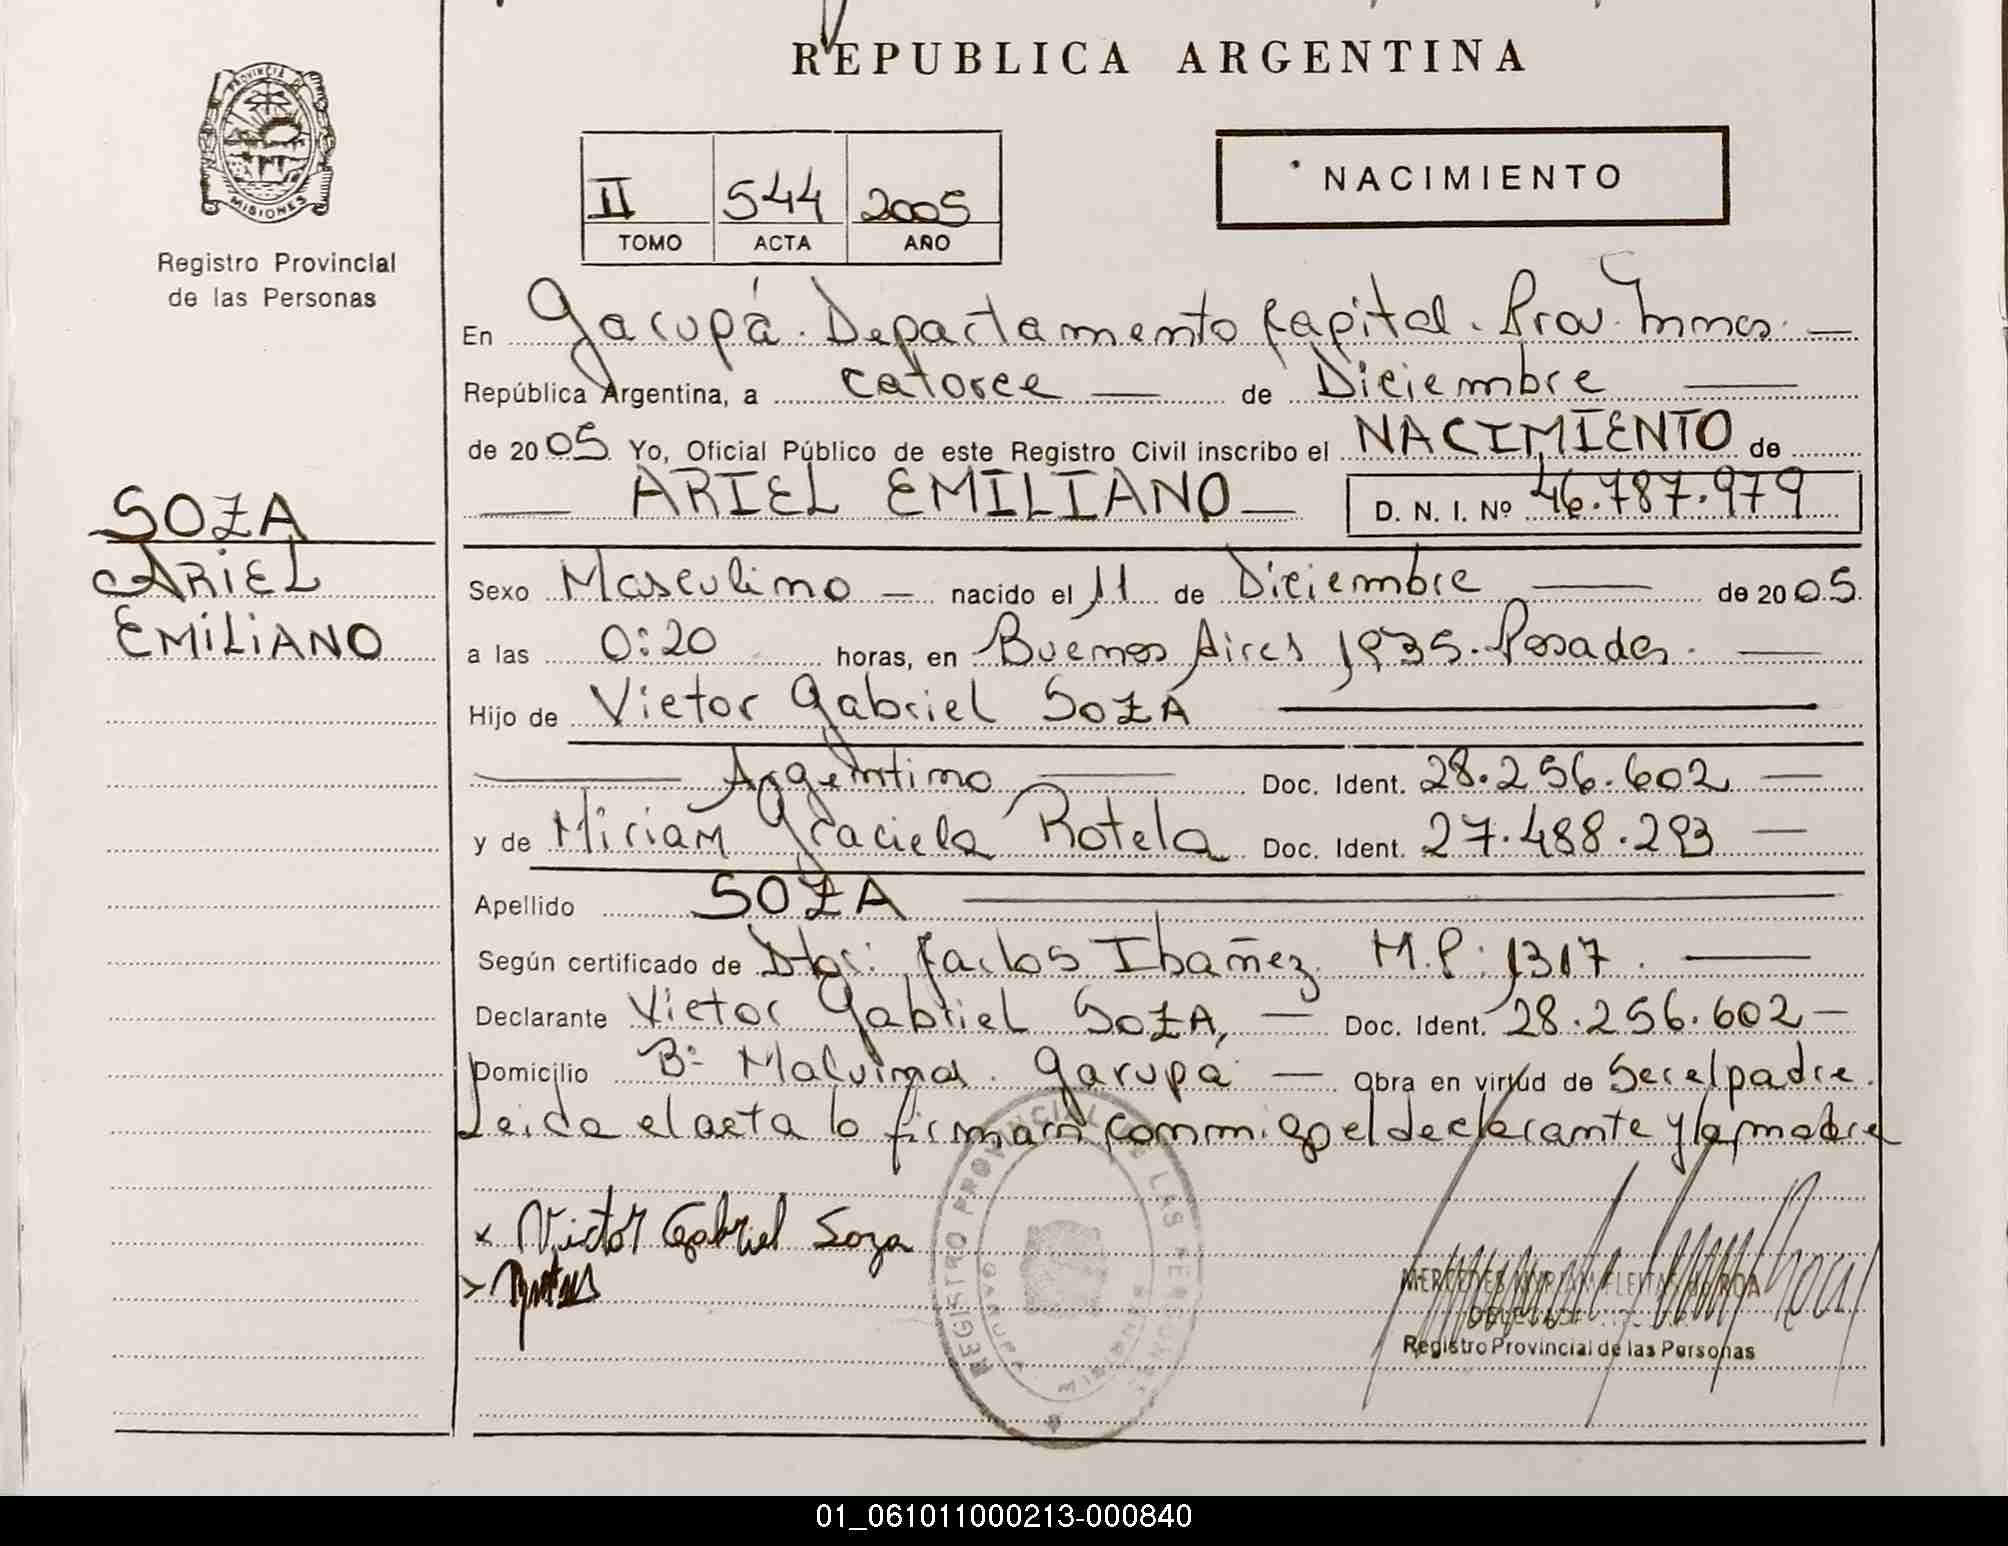 REPUBLICA ARGENTINA
PROVINCIA DE
MISIONES
Registro Provincial
de las Personas
II 544 2005
TOMO ACTA AÑO
NACIMIENTO
En Garupá. Departamento Capital. Prov. Mnes. —
República Argentina, a catorce — de Diciembre —
de 2005 Yo, Oficial Público de este Registro Civil inscribo el NACIMIENTO de
— ARIEL EMILIANO — D. N. I. Nº 46.787.979
SOZA
ARIEL
EMILIANO
Sexo Masculino — nacido el 11 de Diciembre — de 2005.
a las 0:20 horas, en Buenos Aires 1935. Posadas. —
Hijo de Victor Gabriel SOZA —
— Argentino — Doc. Ident. 28.256.602 —
y de Miriam Graciela Rotela Doc. Ident. 27.488.293 —
Apellido SOZA —
Según certificado de Dtor: Carlos Ibañez. M.P: 1317. —
Declarante Victor Gabriel SOZA, — Doc. Ident. 28.256.602 —
Domicilio Bº Malvinas. Garupá — Obra en virtud de Ser el padre.
Leida el acta lo firman conmigo el declarante y la madre
x Victor Gabriel Soza
REGISTRO PROVINCIAL DE LAS PERSONAS
MERCEDES MYRIAM FLEITAS de ROA
DELEGADA
Registro Provincial de las Personas
01_061011000213-000840